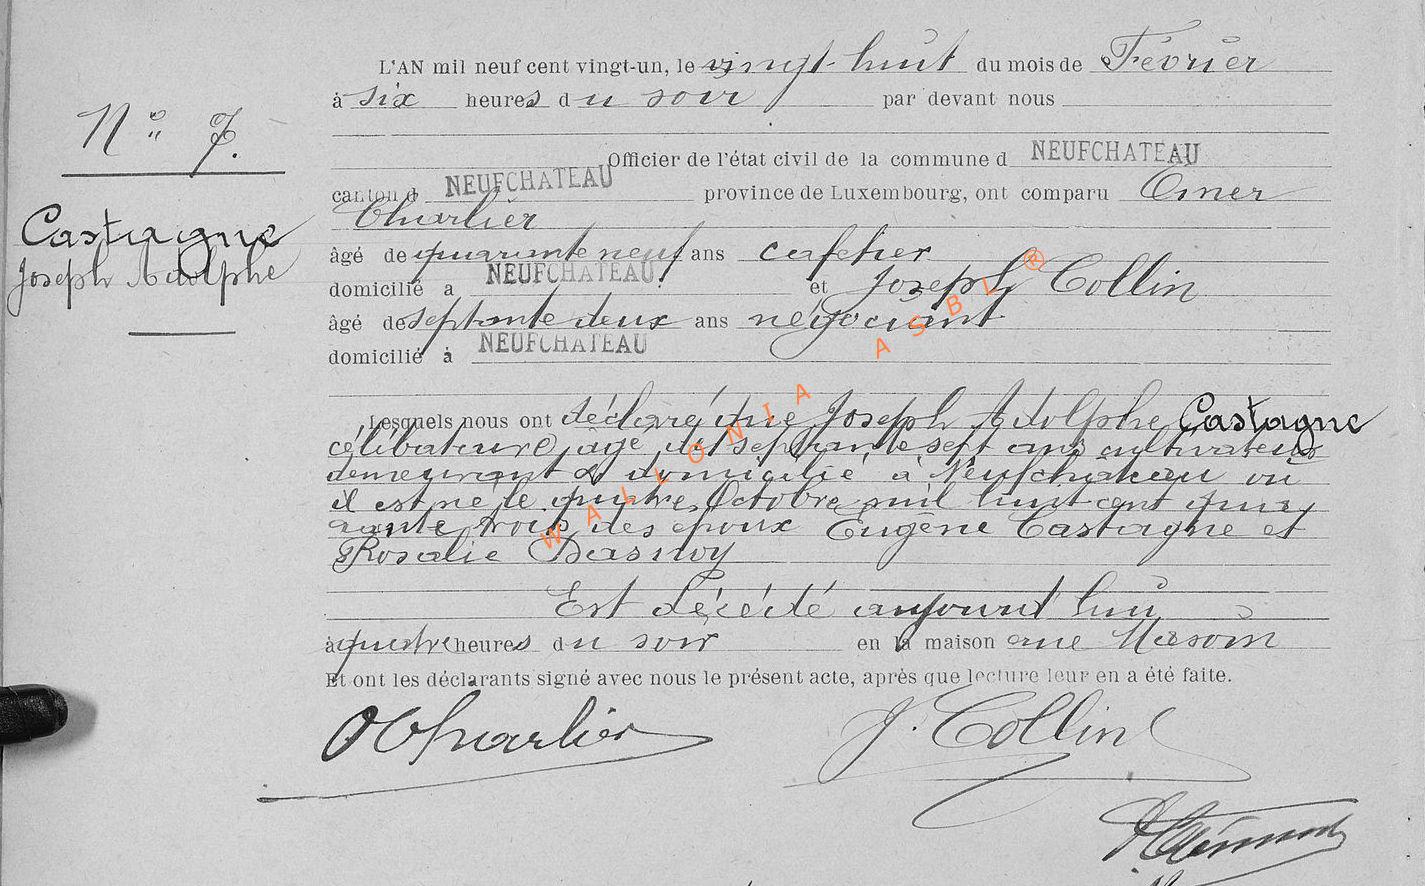 L'AN mil neuf cent vingt-un, le vingt-huit du mois de Février
à six heures du soir par devant nous
N° 7.
Officier de l'état civil de la commune d NEUFCHATEAU
canton d NEUFCHATEAU province de Luxembourg, ont comparu Omer
Charlier
Castagne
Joseph Adolphe
âgé de quarante neuf ans cafetier
domicilié à NEUFCHATEAU et Joseph Collin
âgé de septante deux ans négociant
domicilié à NEUFCHATEAU
Lesquels nous ont déclaré que Joseph Adolphe Castagne
célibataire, âgé de septante sept ans cultivateur
demeurant & domicilié à Neufchateau où
il est né le quatre Octobre mil huit cent qua
rante trois des époux Eugène Castagne et
Rosalie Dasnoy
Est décédé aujourd'hui
à quatre heures du soir en la maison rue
Et ont les déclarants signé avec nous le présent acte, après que lecture leur en a été faite.
O Charlier J. Collin
WALLONIA ASBL ®